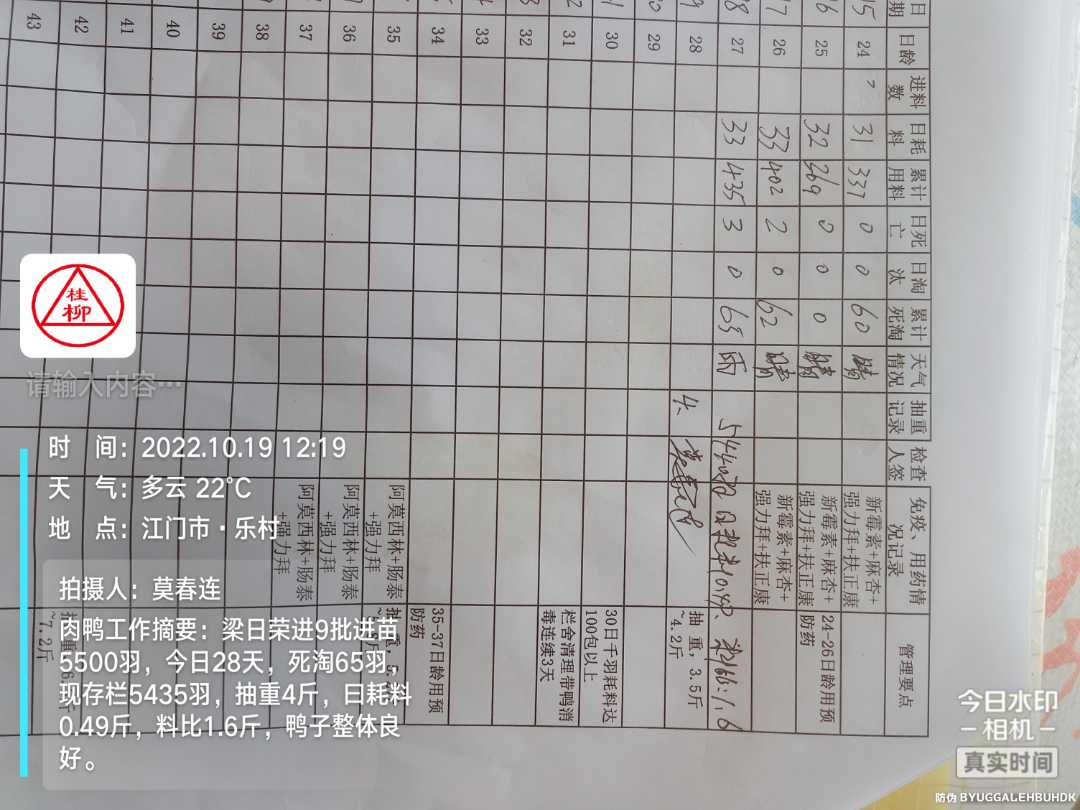 日期 日龄 进料数 日耗料 累计用料 日死亡 日淘汰 累计死淘 天气情况 抽重记录 检查人签 免疫、用药情况记录 管理要点
15 24 31 337 0 0 60 晴 新霉素+麻杏+强力拜+扶正康
16 25 32 369 0 0 0 晴 新霉素+麻杏+强力拜+扶正康 24-26日龄用预防药
17 26 33 402 2 0 62 晴 新霉素+麻杏+强力拜+扶正康
18 27 33 435 3 0 65 雨
28 4 抽重，3.5斤~4.2斤
29
30 30日千羽耗料达100包以上
31 栏舍清理带鸭消毒连续3天
32
33
34 35-37日龄用预防药
35 阿莫西林+肠泰+强力拜
36 阿莫西林+肠泰+强力拜
37 阿莫西林+肠泰+强力拜
38
39
40
41
42
43
桂
柳
请输入内容…
时 间：2022.10.19 12:19
天 气：多云 22℃
地 点：江门市·乐村
拍摄人：莫春连
肉鸭工作摘要：梁日荣进9批进苗
5500羽，今日28天，死淘65羽，
现存栏5435羽，抽重4斤，曰耗料
0.49斤，料比1.6斤，鸭子整体良
好。
今日水印
相机
真实时间
防伪 BYUGGALEHBUHDK